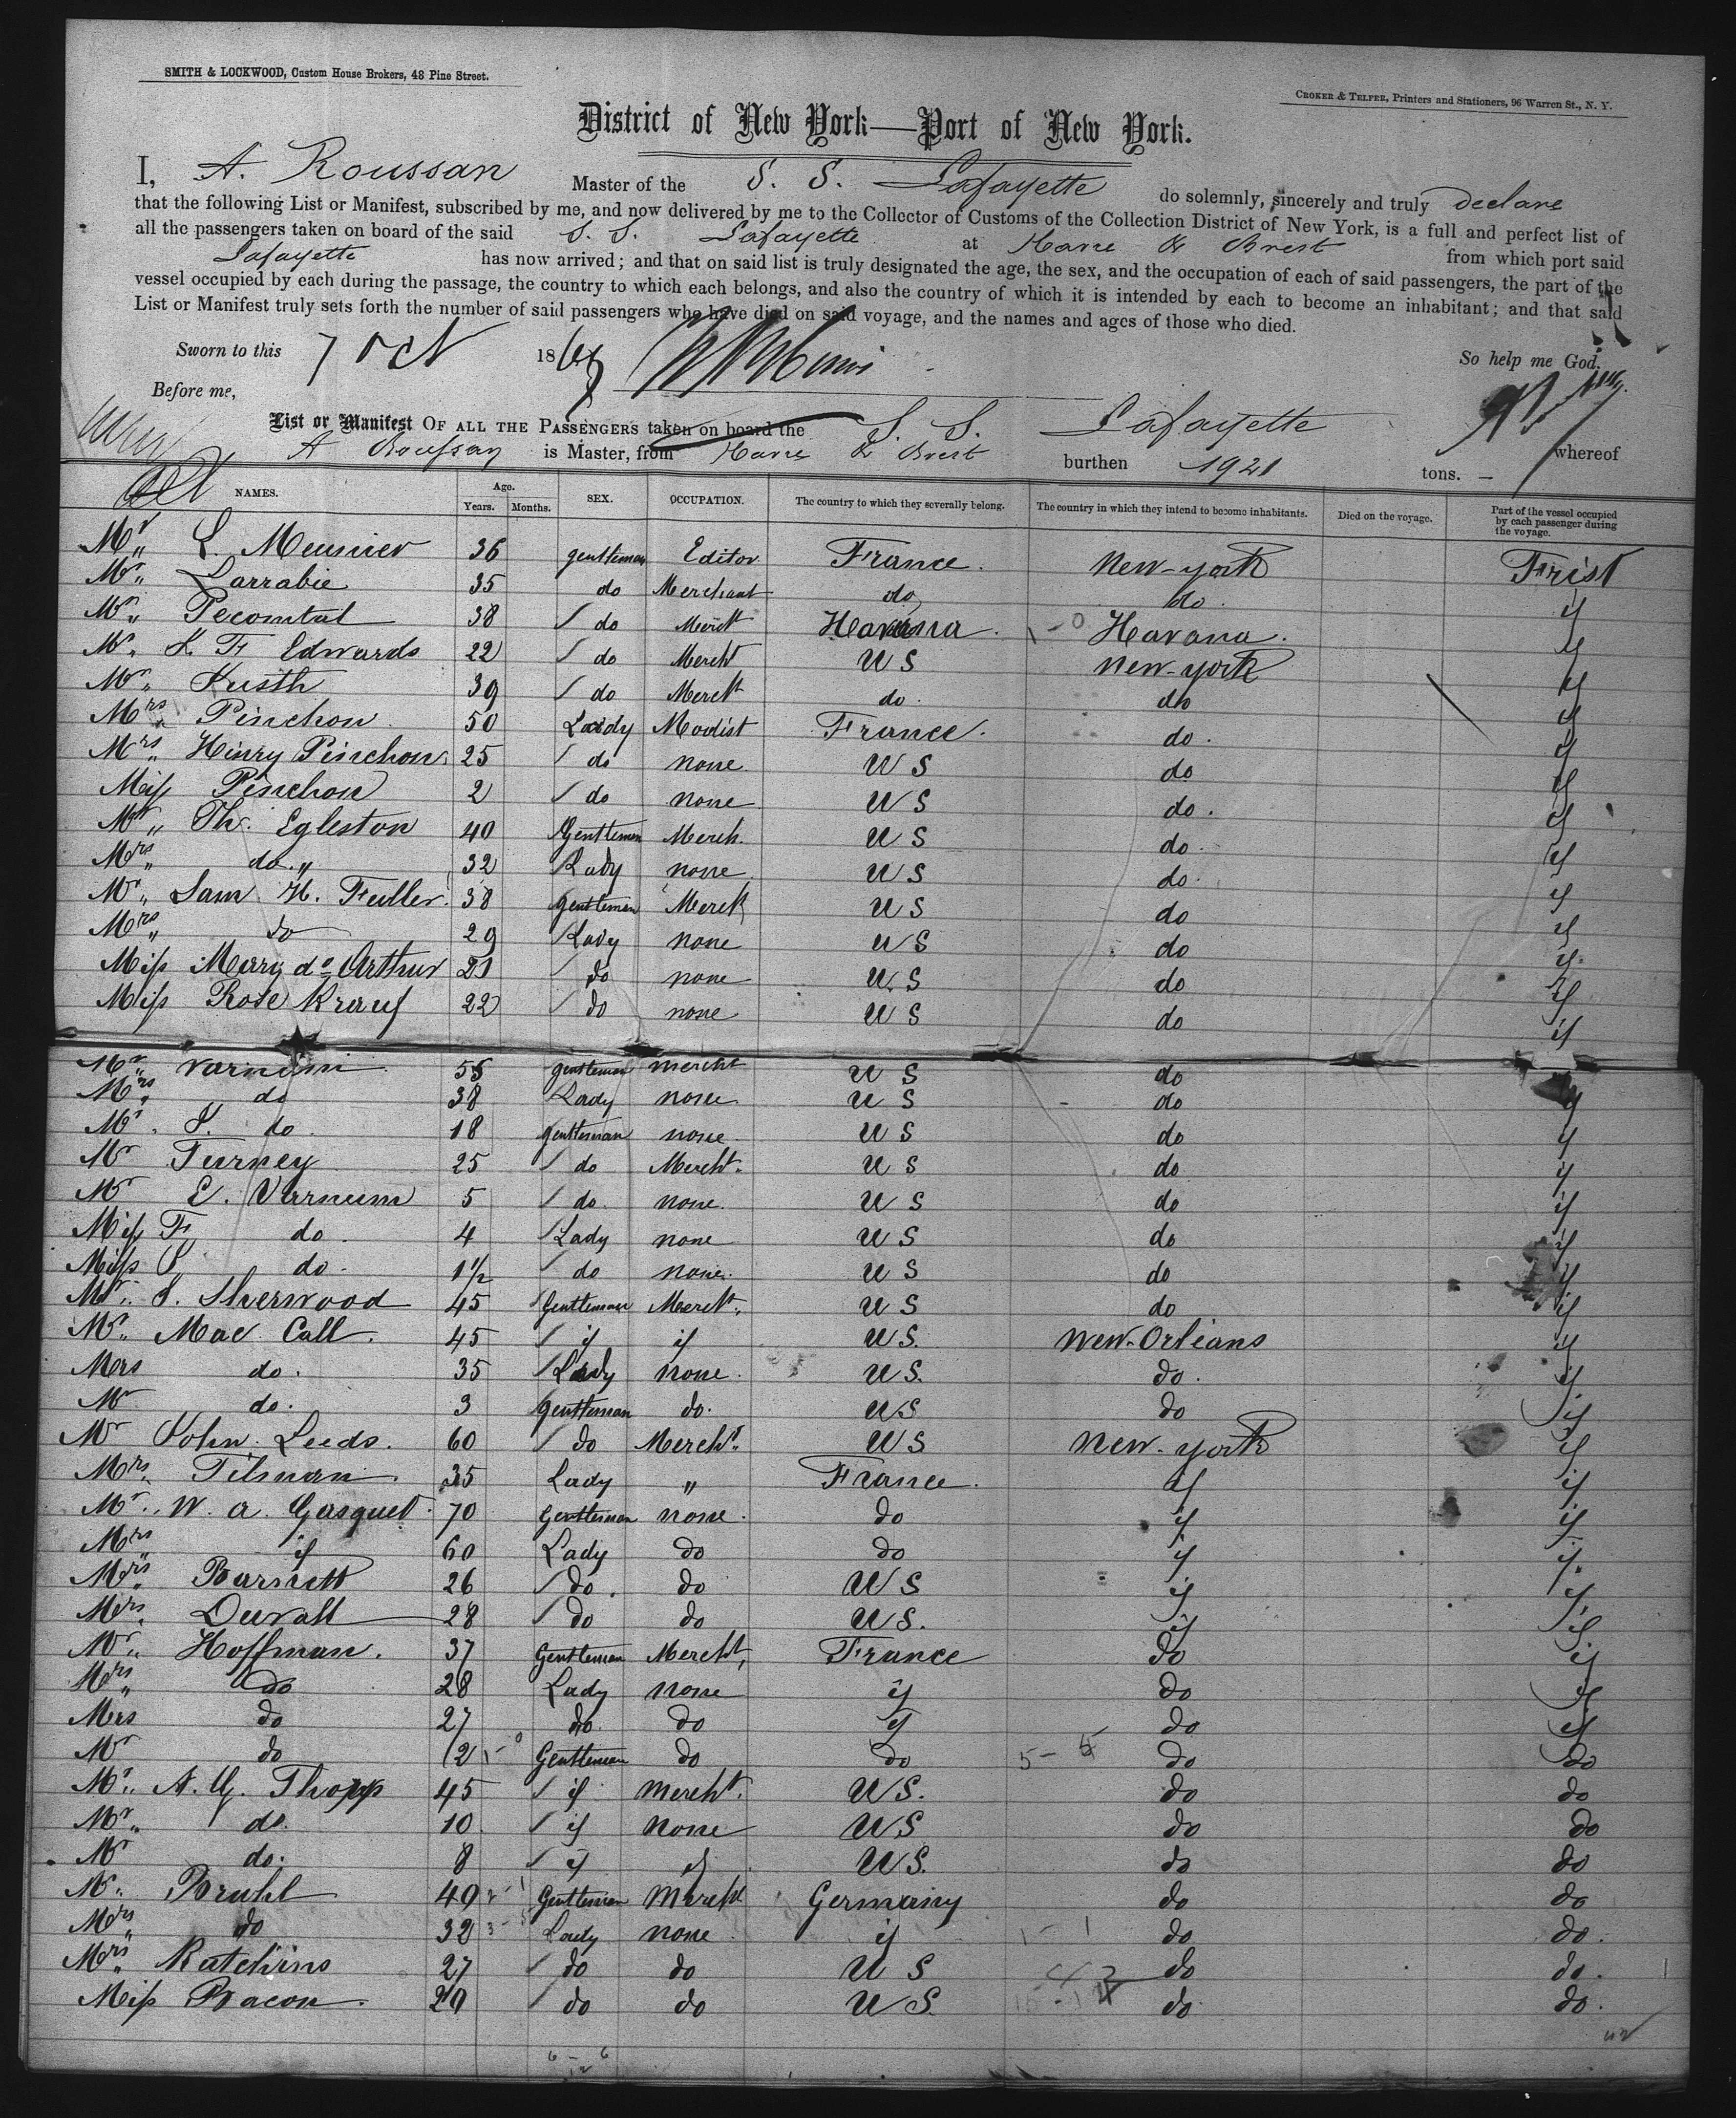 SMITH & LOCKWOOD, Custom House Brokers, 48 Pine Street.
CROKER & TELFER, Printers and Stationers, 96 Warren St., N. Y.
District of New York—Port of New York.
I, A. Roussan Master of the S. S. Lafayette do solemnly, sincerely and truly declare
that the following List or Manifest, subscribed by me, and now delivered by me to the Collector of Customs of the Collection District of New York, is a full and perfect list of
all the passengers taken on board of the said S. S. Lafayette at Havre & Brest from which port said
Lafayette has now arrived; and that on said list is truly designated the age, the sex, and the occupation of each of said passengers, the part of the
vessel occupied by each during the passage, the country to which each belongs, and also the country of which it is intended by each to become an inhabitant; and that said
List or Manifest truly sets forth the number of said passengers who have died on said voyage, and the names and ages of those who died.
Sworn to this 7 Oct 186 So help me God.
Before me,
List or Manifest OF ALL THE PASSENGERS taken on board the S. S. Lafayette whereof
A Roussan is Master, from Havre & Brest burthen 1921 tons.
NAMES. Age. Years. Months. SEX. OCCUPATION. The country to which they severally belong. The country in which they intend to become inhabitants. Died on the voyage. Part of the vessel occupied by each passenger during the voyage.
Mr L. Meunier 36 gentleman Editor France. New-york Frist
Mr Larrabie 35 do Merchant do do. if
Mr Pecomtal 38 do Mercht Havana. Havana. if
Mr F. Edwards 22 do Mercht U S New-york if
Mr Kusth 39 do Mercht do. do if
Mrs Pinchon 50 Lady Modist France. do. if
Mrs Hinry Pinchon 25 do none U S do if
Miss Pinchon 2 do none U S do. if
Mr Th. Egleston 40 Gentleman Merch. U S do. if
Mrs do 32 Lady none U S do. if
Mr Sam H. Fuller 38 gentleman Mercht U S do if
Mrs do 29 Lady none U S do if
Miss Merry de Arthur 21 do none U.S do if
Miss Rose Krauf 22 do none U S do if
Mr Varnum 55 gentleman mercht U S do
Mrs do 38 Lady none U S do if
Mr S. do 18 gentleman none U S do if
Mr Furney 25 do Mercht. U S do if
Mr E. Varnum 5 do none. U S do if
Miss F do. 4 Lady none U S do if
Miss S do. 1 1/2 do none. U S do if
Mr S. Sherwood 45 Gentleman Mercht. U S do if
Mr Mac Call. 45 if if U S. New-Orleans if
Mers do. 35 Lady none. U S. do. if
Mr do. 3 gentleman do. U S do if
Mr John Leeds. 60 do Mercht. U S New-york if
Mrs Tilman 35 Lady " France. if if
Mr W. a. Gasquet 70 Gentleman none. do if if
Mrs if 60 Lady do do if if
Mrs Barnett 26 do. do U S if if
Mrs Duvall 28 do do U S. if if
Mr Hoffman. 37 Gentleman Mercht, France do if
Mrs do 28 Lady none if do if
Mers do 27 do. do if do if
Mr do 2 Gentleman do do 5 - 5 do do
Mr A. G. Thopp 45 if mercht. U S. do do
Mr do. 10 if none U S do do
Mr do. 8 if if U S. do do
Mr Bruhl 49 Gentleman Mercht Germany do do
Mrs do 32 Lady none if 1 - 1 do do.
Mrs Katchins 27 do do U S do do.
Miss Bacon. 29 do do U S. do. do.
6 - 6